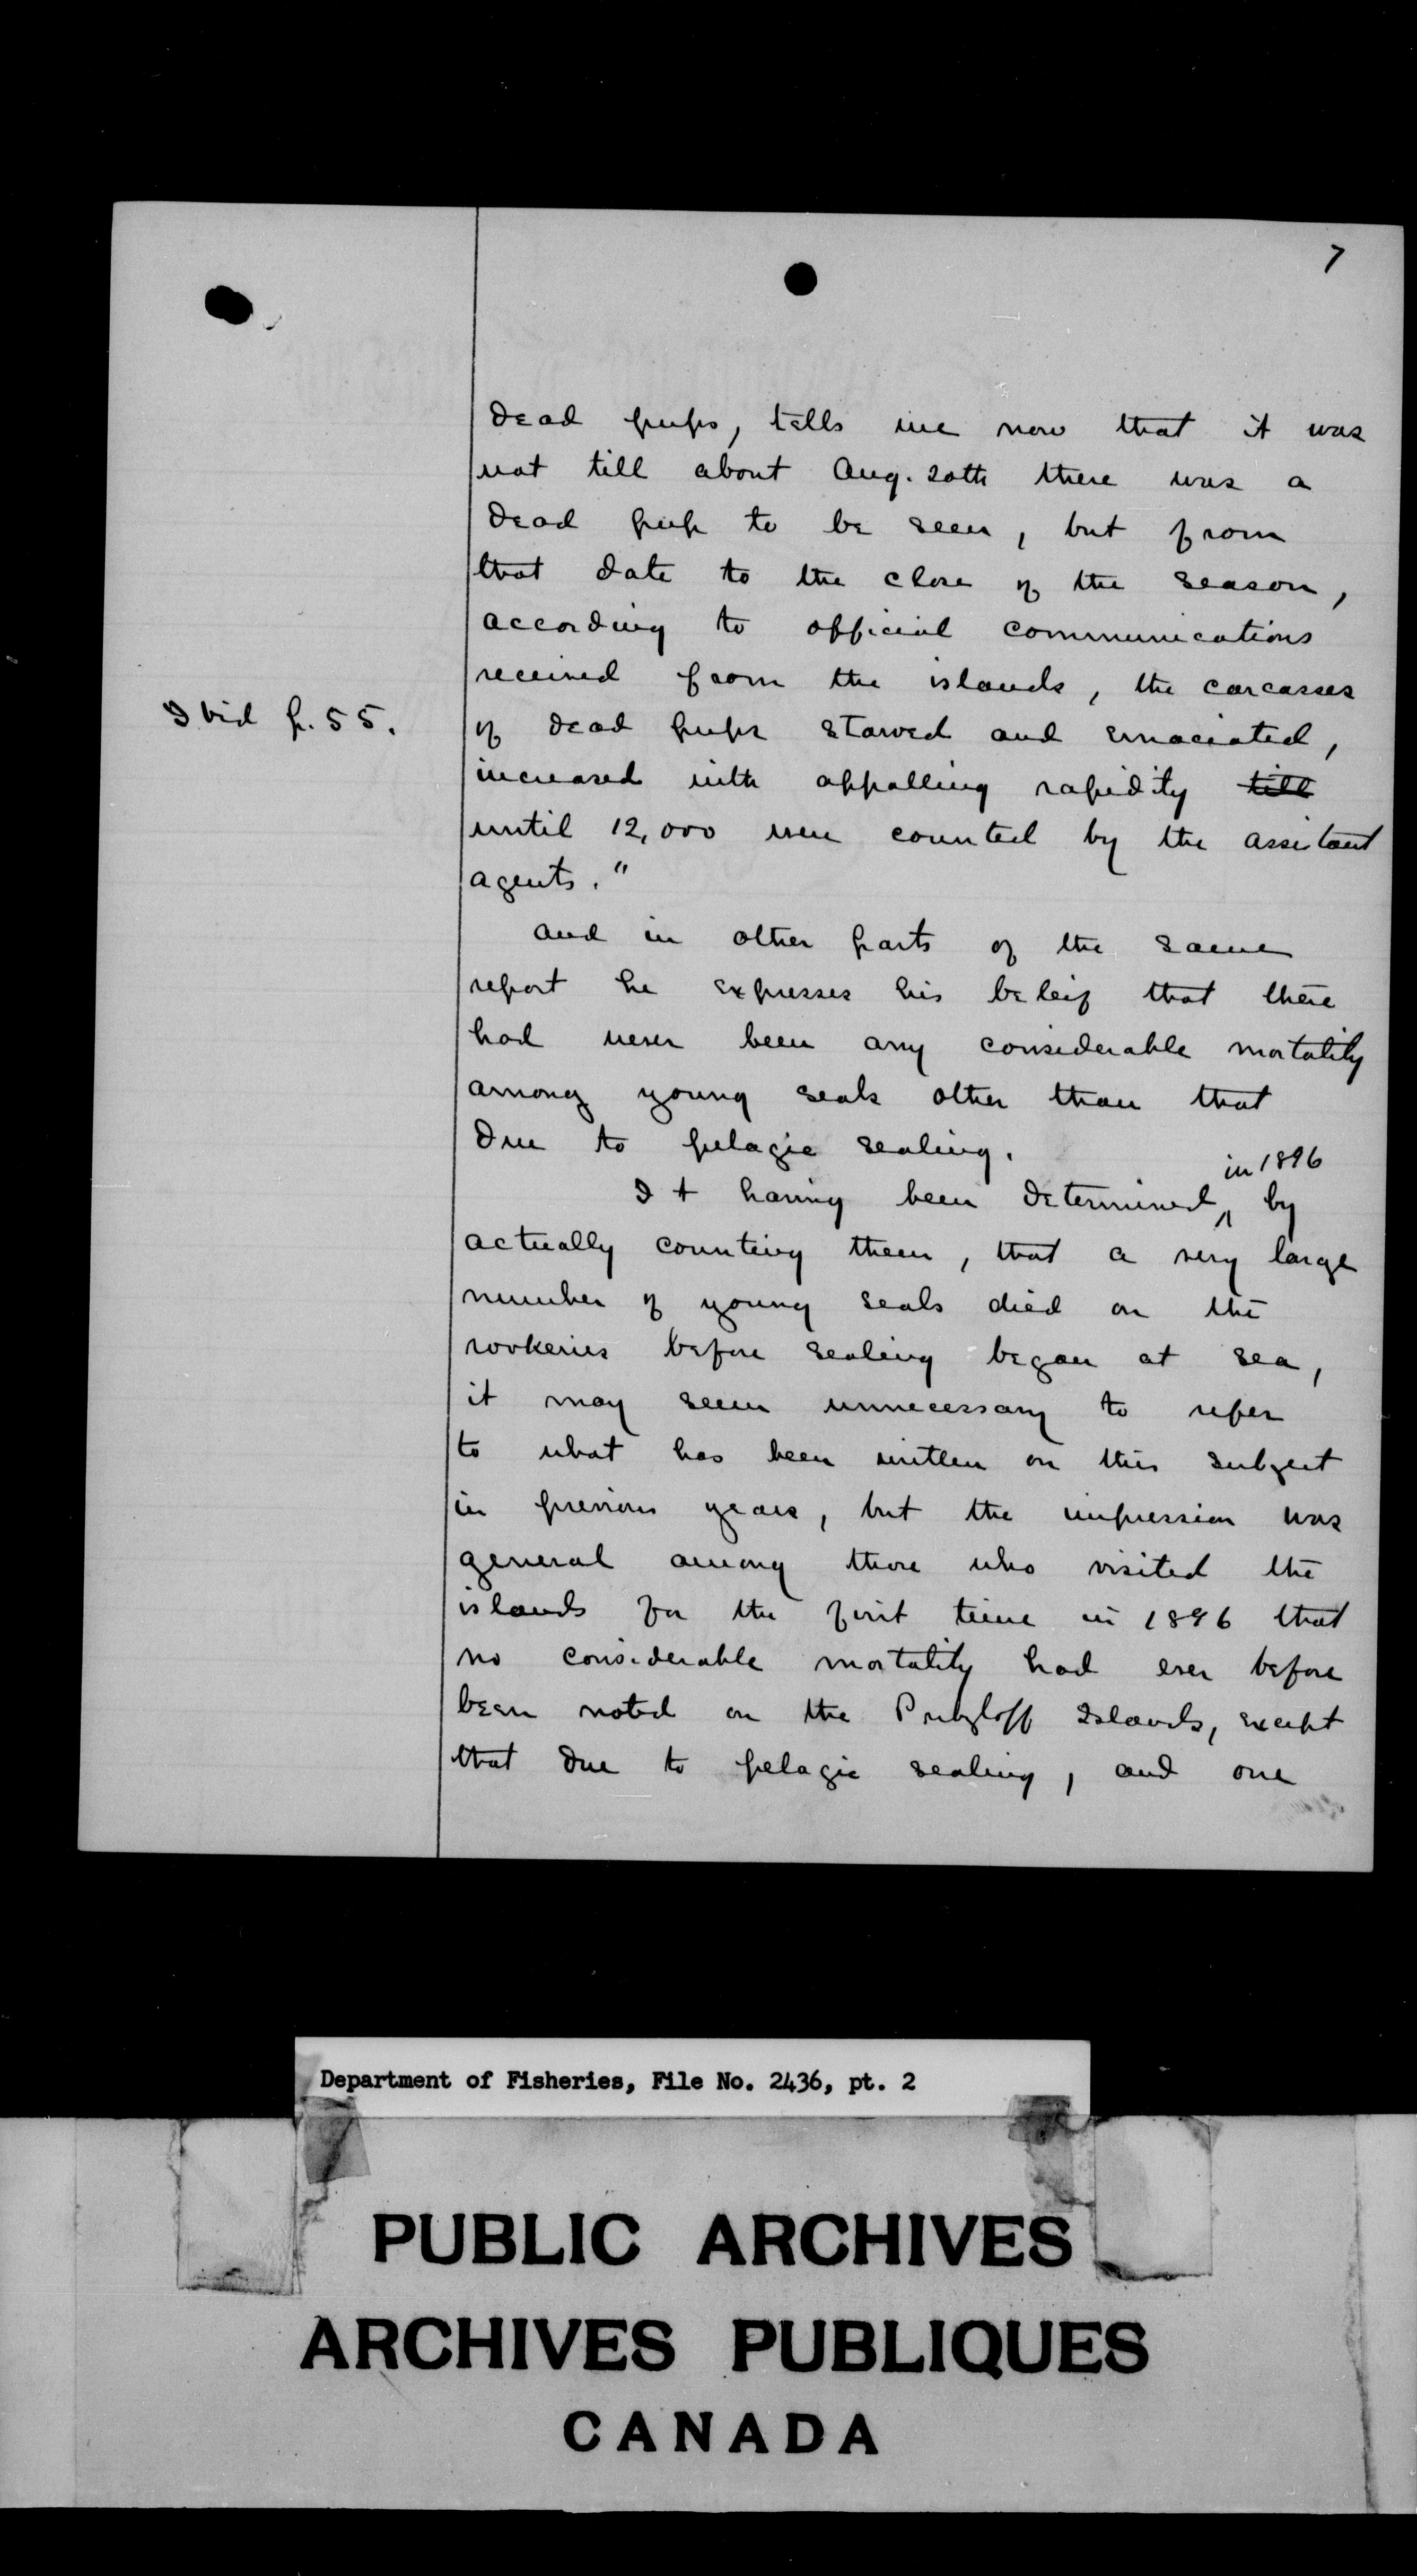 7
dead pups, tells me now that it was
not till about Aug. 20th there was a
dead pup to be seen, but from
that date to the close of the season,
according to official communications
received from the islands, the carcasses
Ibid p. 55.
of dead pups starved and emaciated,
increased with appalling rapidity till
until 12,000 were counted by the assistant
agents."
and in other parts of the same
report he expresses his beleif that there
had never been any considerable mortality
among young seals other than that
due to pelagic sealing.
in 1896
It having been determined, by
actually counting them, that a very large
number of young seals died on the
rookeries before sealing began at sea,
it may seem unnecessary to refer
to what has been written on this subject
in previous years, but the impression was
general among those who visited the
islands for the first time in 1896 that
no considerable mortality had ever before
been noted on the Pribyloff Islands, except
that due to pelagic sealing, and one
Department of Fisheries, File No. 2436, pt. 2
PUBLIC ARCHIVES
ARCHIVES PUBLIQUES
CANADA